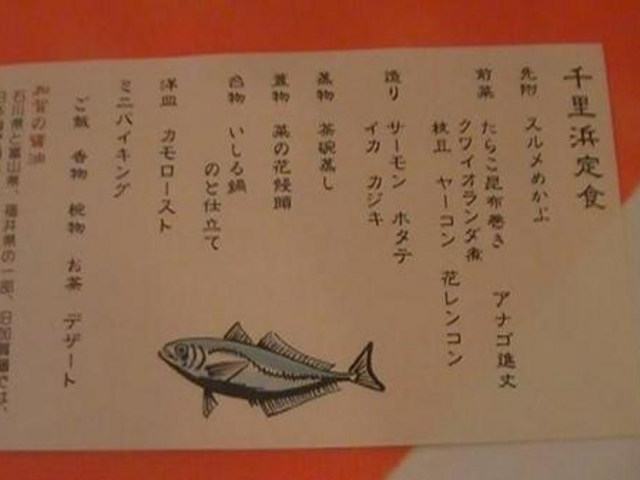 千里浜定食
先附 スルメめかぶ
前菜 たらこ昆布巻き アナゴ進丈
クワイオランダ煮
枝豆 ヤーコン 花レンコン
造り サーモン ホタテ
イカ カジキ
蒸物 茶碗蒸し
蓋物 菜の花饅頭
合物 いしる鍋
のと仕立て
洋皿 カモロースト
ミニバイキング
ご飯 香物 椀物 お茶 デザート
加賀の醤油
石川県と富山県、福井県の一部、旧加賀藩では、